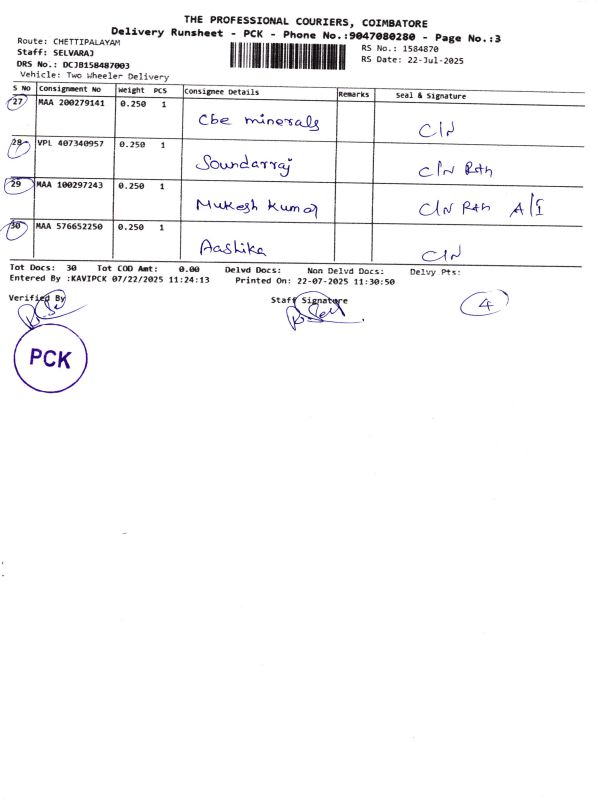 THE PROFESSIONAL COURIERS, COIMBATORE
Delivery Runsheet - PCK - Phone No.:9047080280 - Page No.:3
Route: CHETTIPALAYAM
Staff: SELVARAJ
DRS No.: DCJB158487003
Vehicle: Two Wheeler Delivery
RS No.: 1584870
RS Date: 22-Jul-2025
S No Consignment No Weight PCS Consignee Details Remarks Seal & Signature
27 MAA 200279141 0.250 1 Cbe minerals C/N
28 VPL 407340957 0.250 1 Soundarraj C/N Rth
29 MAA 100297243 0.250 1 Mukesh Kumar C/N Rth A/I
30 MAA 576652250 0.250 1 Aashika C/N
Tot Docs: 30 Tot COD Amt: 0.00 Delvd Docs: Non Delvd Docs: Delvy Pts:
Entered By :KAVIPCK 07/22/2025 11:24:13 Printed On: 22-07-2025 11:30:50
Verified By Staff Signature 4
PCK